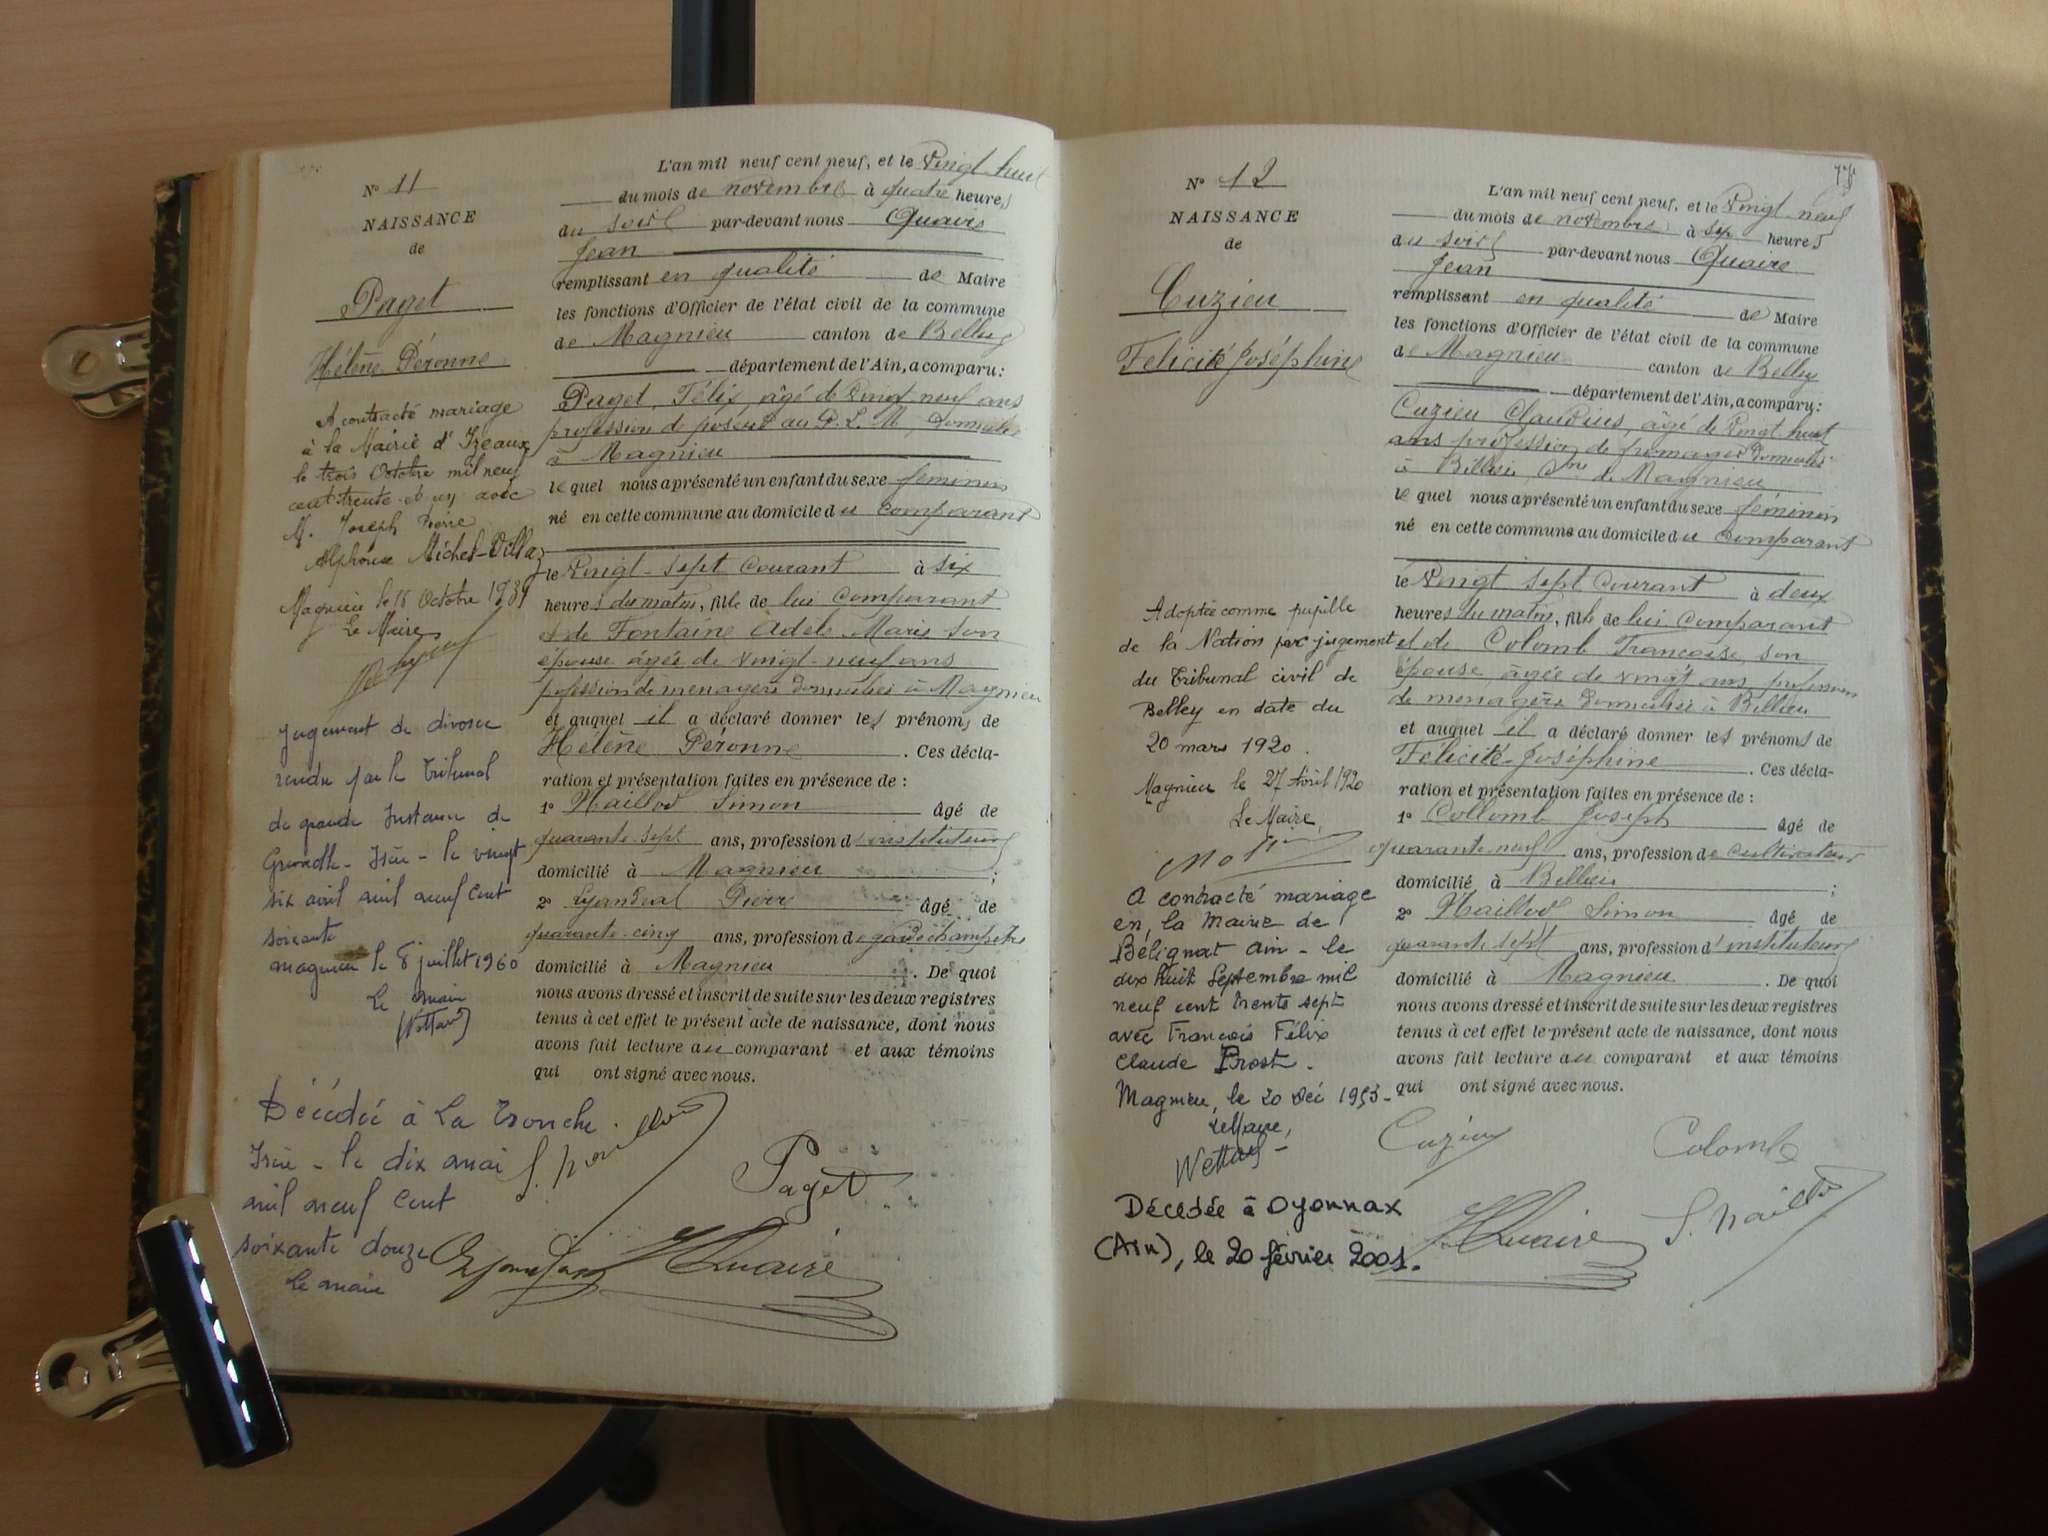 N° 11
NAISSANCE
de
Paget
Hélène Péronne
A contracté mariage
à la Mairie d'Izeaux
le trois Octobre mil neuf
cent trente et un avec
M. Joseph Pierre
Alphonse Michel-Villaz
Magnieu le 18 Octobre 1931
Le Maire
Jugement de divorce
rendu par le Tribunal
de grande Instance de
Grenoble - Isère - le vingt
six avril mil neuf cent
soixante
magnieu le 8 juillet 1960
Le maire
Décédée à La Tronche
Isère - le dix mai
mil neuf cent
soixante douze
Le maire
L'an mil neuf cent neuf, et le Vingt huit
du mois de novembre à quatre heures
du soir par-devant nous Quaire
Jean
remplissant en qualité de Maire
les fonctions d'Officier de l'état civil de la commune
de Magnieu canton de Belley
département de l'Ain, a comparu :
Paget, Félix, âgé de vingt neuf ans
profession de poseur au P. L. M, domicilié
à Magnieu
lequel nous a présenté un enfant du sexe féminin
né en cette commune au domicile du comparant
le Vingt-sept Courant à six
heures du matin, fille de lui Comparant
et de Fontaine Adèle Marie son
épouse âgée de vingt-neuf ans
profession de ménagère domiciliée à Magnieu
et auquel il a déclaré donner les prénoms de
Hélène Péronne. Ces décla-
ration et présentation faites en présence de :
1° Naillod Simon âgé de
quarante-sept ans, profession d'instituteur
domicilié à Magnieu ;
2° Pierre âgé de
quarante-cinq ans, profession de garde champêtre
domicilié à Magnieu. De quoi
nous avons dressé et inscrit de suite sur les deux registres
tenus à cet effet le présent acte de naissance, dont nous
avons fait lecture au comparant et aux témoins
qui ont signé avec nous.
S. Naillod
Paget
Quaire
N° 12
NAISSANCE
de
Cuzieu
Félicité Joséphine
Adoptée comme pupille
de la Nation par jugement
du Tribunal civil de
Belley en date du
20 mars 1920.
Magnieu le 27 Avril 1920
Le Maire,
A contracté mariage
en la Mairie de
Bélignat Ain - le
dix huit Septembre mil
neuf cent trente sept
avec François Félix
Claude Prost.
Magnieu, le 20 Déc 1953-
Le Maire,
Décédée à Oyonnax
(Ain), le 20 février 2001.
L'an mil neuf cent neuf, et le Vingt-neuf
du mois de novembre à sept heures
du soir par-devant nous Quaire
Jean
remplissant en qualité de Maire
les fonctions d'Officier de l'état civil de la commune
de Magnieu canton de Belley
département de l'Ain, a comparu :
Cuzieu Claudius, âgé de Vingt huit
ans profession de fromager domicilié
à Billieu, Cne de Magnieu
lequel nous a présenté un enfant du sexe féminin
né en cette commune au domicile du Comparant
le Vingt sept Courant à deux
heures du matin, fille de lui Comparant
et de Colomb Françoise, son
épouse, âgée de vingt ans, profession
de ménagère domiciliée à Billieu
et auquel il a déclaré donner les prénoms de
Félicité-Joséphine. Ces décla-
ration et présentation faites en présence de :
1° Collomb Joseph âgé de
quarante-neuf ans, profession de cultivateur
domicilié à Billieu ;
2° Naillod Simon âgé de
quarante sept ans, profession d'instituteur
domicilié à Magnieu. De quoi
nous avons dressé et inscrit de suite sur les deux registres
tenus à cet effet le présent acte de naissance, dont nous
avons fait lecture au comparant et aux témoins
qui ont signé avec nous.
Cuzieu
Colomb
Quaire
S. Naillod